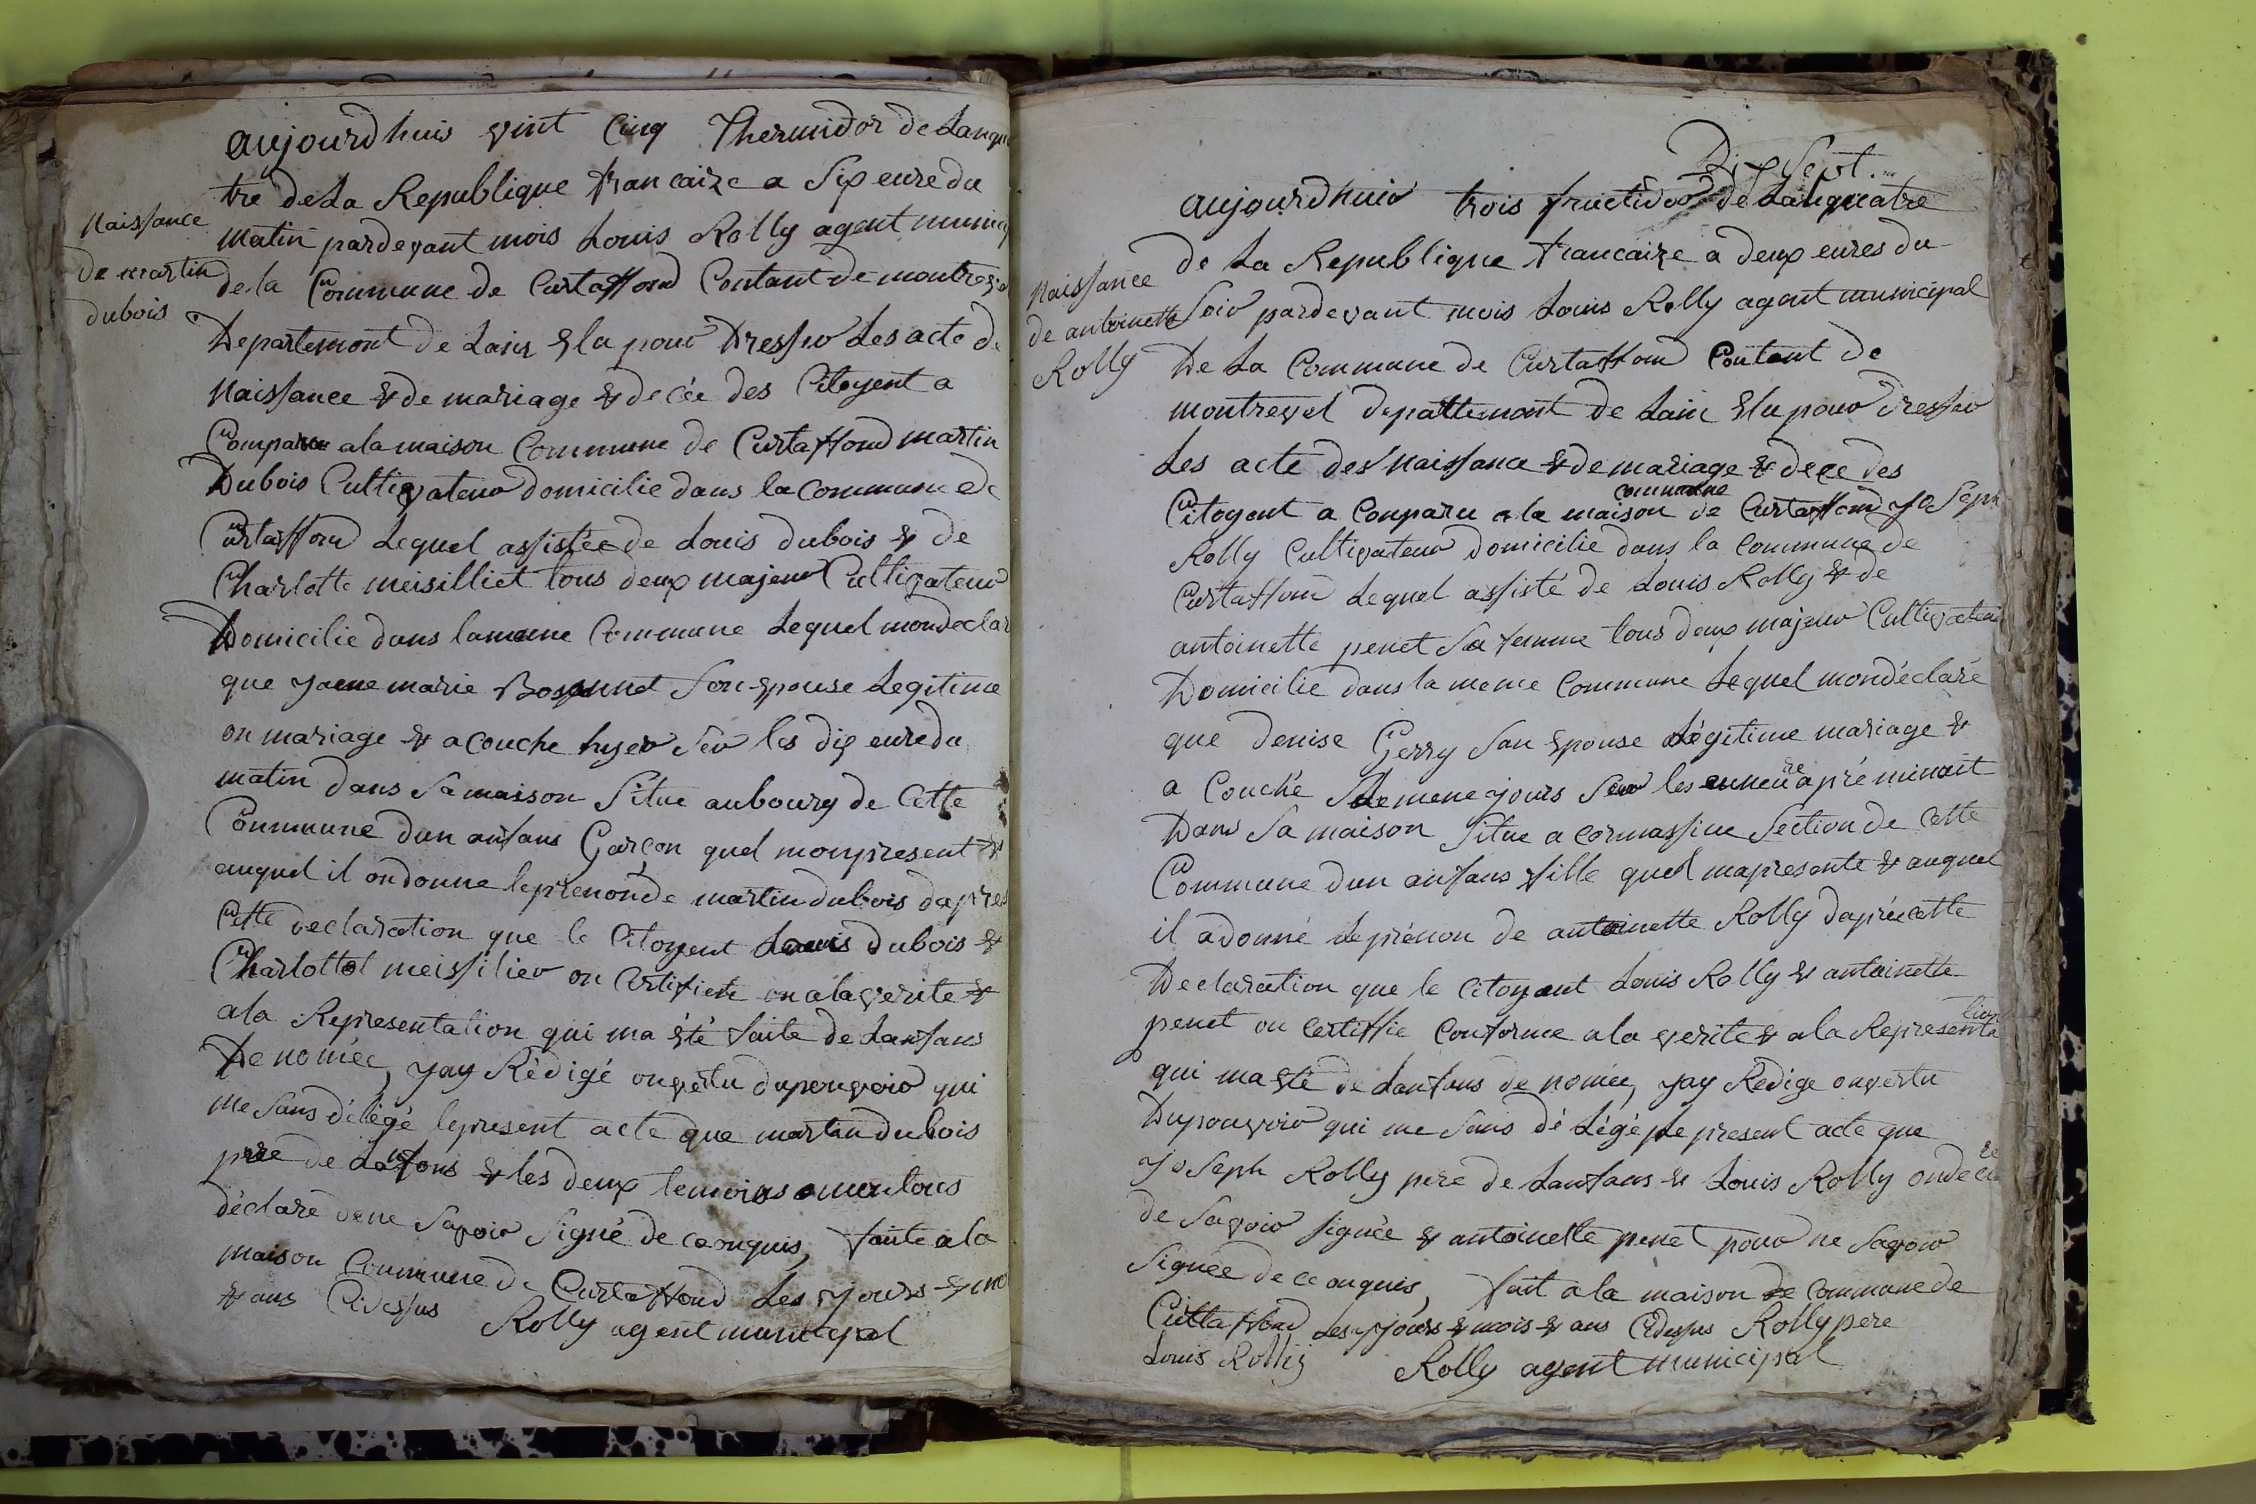 aujourdhuis vint Cinq Thermidor de Lanqua
tre de La Republique francaize a Six eure du
Naissance
de martin
dubois
matin pardevant mois Louis Rolly agent munici
de la Commune de Curtaffond Contant de montreve
Departemont de Lain Elu pour Dresser Les acte de
Naissance & de mariage & decée des Citoyent a
Comparue a la maison Commune de Curtaffond martin
Dubois Cultivateur domicilie dans la Commune de
Curtaffon Lequel assistée de Louis dubois & de
Charlotte meisilliet tous deux majeur Cultivateur
Domicilie dans la meme Commune Lequel mondeclar
que jaene marie Son Epouse Legitime
on mariage & a couche hyer Seur les dix eure du
matin dans Sa maison Situe au bourg de Cette
Commune dun anfans Garçon quel mon present &
auquel il on donne le prenon de martin dubois dapres
Cette declaration que le Citoyent Louis dubois &
Charlottot meissilier on Certifiente on a la verite &
a la Representation qui ma été faite de Lanfans
De nomée, jay Rédigé on vertu du pouvoir qui
me Sans délégé le present acte que martin dubois
pere de Lanfans & les deux temoins tous
déclaré de ne Savoir Signé de ce onquis, faite a la
maison Commune de Curtaffond Les jours & mo
& ans Cidessus Rolly agent municipal
Dix Sept.
aujourdhuis trois fructidor de Lanquatre
de La Republique francaize a deux eures du
Naissance
de antoinette
Rolly
Soir pardevant mois Louis Rolly agent municipal
De La Commune de Curtaffond Contant de
montrevel depattemont de Lain Elu pour dresser
Les acte des Naissance & de mariage & dece des
Citoyent a Comparu a la maison commune de Curtaffond joSeph
Rolly Cultivateur domicilie dans la Commune de
Curtaffon Lequel assisté de Louis Rolly & de
antoinette penet Sa femme tous deux majeur Cultivateur
Domicilie dans la meme Commune Lequel mondéclaré
que denise Gerry Son Epouse Légitime mariage &
a Couché Le meme jours Seur les apré minuit
Dans Sa maison Situe a cormassine Section de Cette
Commune dun anfans fille quel ma presente & auquel
il a donné Le prénon de antoinette Rolly daprés cette
Declaration que le Citoyant Louis Rolly & antoinette
penet on Certiffie Conforme a la verite & a la Representation
qui ma été de Lanfans de nomée, jay Redige on vertu
Du pouvoir qui me Sans dé Légé Le present acte que
joSeph Rolly pere de Lanfans & Louis Rolly on declaré
de Savoir Signée & antoinette penet pour ne Savoir
Signée de ce onquis, fait a la maison de Commune de
Cuttaffond Les jours & mois & ans Cidessus Rolly pere
Louis Rolly Rolly agent municipal